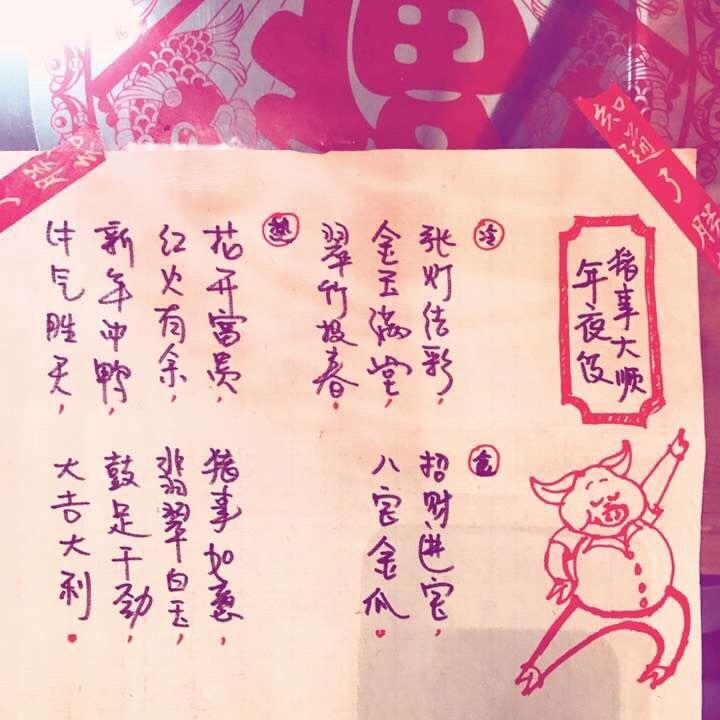 福
知道了 朕
猪事大顺
年夜饭
冷
张灯结彩，
金玉满堂，
翠竹报春，
招财进宝，
八宝金瓜。
热
花开富贵，
红火有余，
新年冲鸭，
猪事如意，
翡翠白玉，
鼓足干劲，
大吉大利。